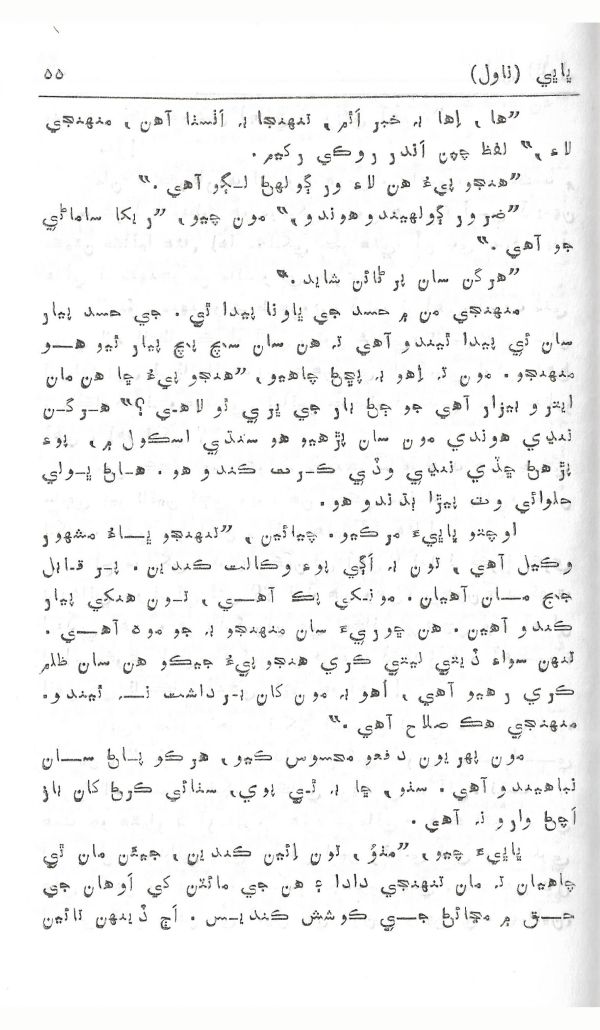 پاپي (ناول)
۵۵
”ها، اِها بہ خبر اَٿم، تنهنجا بہ اَلسفا آهن، منهنجي
لاءِ،“ لفظ چپن اَندر روڪي رکيم.
”هنجو پيءُ هن لاءِ ور ڳولهڻ لڳو آهي.“
”ضرور ڳولهيندو هوندو،“ مون چيو، ”ريکا ساماڻي
جو آهي.“
”هرگن سان پرڻائن شايد.“
منهنجي من ۾ حسد جي ڀاونا پيدا ٿي. جي حسد پيار
سان ئي پيدا ٿيندو آهي تہ هن سان سچ پچ پيار ٿيو هو
منهنجو. مون تہ اِهو بہ پڇڻ چاهيو، ”هنجو پيءُ ڇا هن مان
ايترو بيزار آهي جو ڄڻ بار جي ڀري ٿو لاهي؟“ هرگن
ننڍي هوندي مون سان پڙهيو هو سنڌي اسڪول ۾، پوءِ
پڙهڻ ڇڏي ننڍي وڏي ڪرت ڪندو هو. هاڻ ڀولي
حلوائي وٽ پيڙا ٻڌندو هو.
اوچتو پاپيءَ مرڪيو. چيائين، ”تنهنجو ڀاءُ مشهور
وڪيل آهي، تون بہ اَڳي پوءِ وڪالت ڪندين. پر قابل
جج مان آهيان. مونکي پڪ آهي، تون هنکي پيار
ڪندو آهين. هن ڇوريءَ سان منهنجو بہ جو موه آهي.
تنهن سواءِ ڏيتي ليتي ڪري هنجو پيءُ جيڪو هن سان ظلم
ڪري رهيو آهي، اُهو بہ مون کان برداشت نہ ٿيندو.
منهنجي هڪ صلاح آهي.“
مون پهريون دفعو محسوس ڪيو، هرڪو پاڻ سان
نباهيندو آهي. سٺو، ڇا بہ ٿي پوي، سڌائي ڪرڻ کان باز
اَچڻ وارو نہ آهي.
پاپيءَ چيو، ”مٺوُ، تون اِئين ڪندين، جيئن مان ٿي
چاهيان تہ مان تنهنجي دادا ۽ هن جي مائٽن کي اَوهان جي
حق ۾ مڃائڻ جي ڪوشش ڪنديس. اَڄ ڏينهن تائين